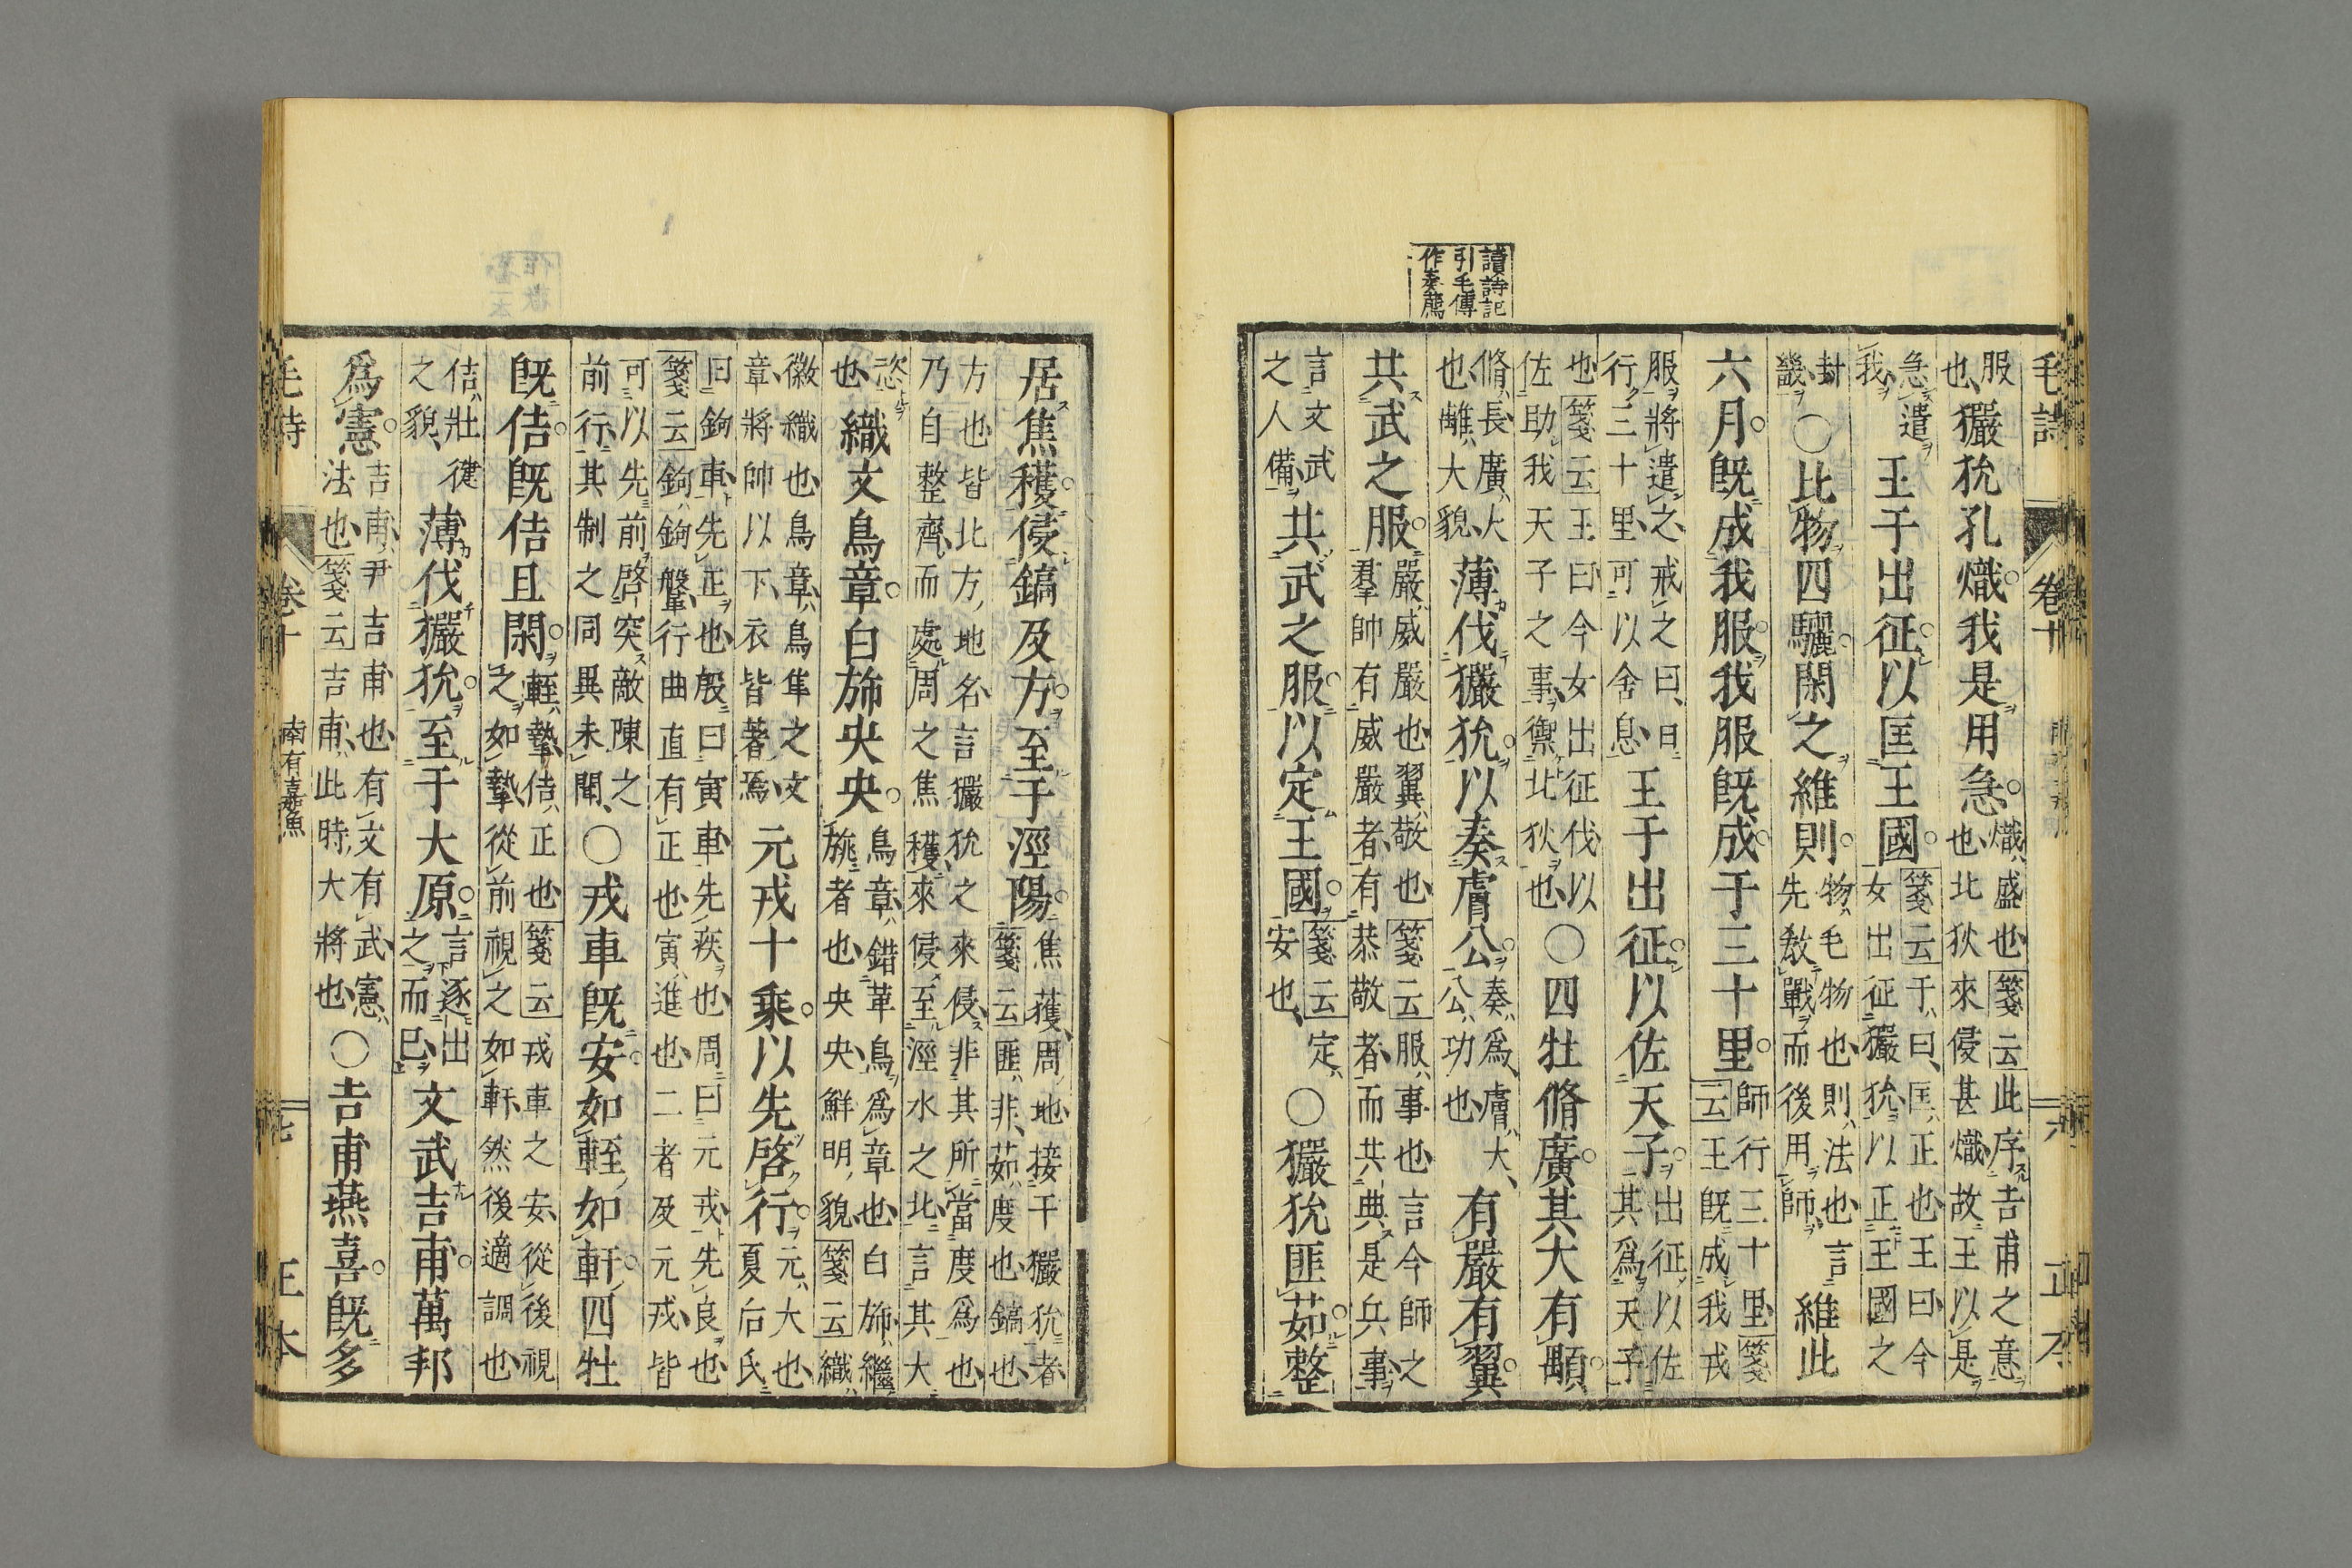 讀詩記
引毛傳
作奏薦
毛詩 卷十 六
服
也、玁狁孔熾我是用急熾盛也箋云此序吉甫之意
也北狄來侵甚熾故王以是
急
遣
我王于出征以匡王國箋云于曰匡正也王曰今
女出征玁狁以正王國之
封
畿〇比物四驪閑之維則物毛物也則法也言
先敎戰而後用師維此
六月既成我服我服既成于三十里師行三十里箋
云王既成我戎
服將遣之戒之曰日
行三十里可以舍息王于出征以佐天子出征以佐
其爲天子
也箋云王曰今女出征伐以
佐助我天子之事禦北狄也〇四牡脩廣其大有顒
脩長廣大
也顒大貌薄伐玁狁以奏膚公奏爲膚大
公功也有嚴有翼
共武之服嚴威嚴也翼敬也箋云服事也言今師之
羣帥有威嚴者有恭敬者而共典是兵事
言文武
之人備共武之服以定王國箋云定
安也〇玁狁匪茹整
居焦穫侵鎬及方至于涇陽焦穫周地接于玁狁者
箋云匪非茹度也鎬也
方也皆北方地名言玁狁之來侵非其所當度爲也
乃自整齊而處周之焦穫來侵至涇水之北言其大
恣
也織文鳥章白旆央央鳥章錯革鳥爲章也白旆繼
旐者也央央鮮明貌箋云織
徽織也鳥章鳥隼之文
章將帥以下衣皆著焉元戎十乘以先啓行元大也
夏后氏
曰鉤車先正也殷曰寅車先疾也周曰元戎先良也
箋云鉤鉤鞶行曲直有正也寅進也二者及元戎皆
可以先前啓突敵陳之
前行其制之同異未聞〇戎車既安如輊如軒四牡
既佶既佶且閑輊摯佶正也箋云戎車之安從後視
之如摯從前視之如軒然後適調也
佶壯健
之貌薄伐玁狁至于大原言逐出
之而已文武吉甫萬邦
爲憲吉甫尹吉甫也有文有武憲
法也箋云吉甫此時大將也〇吉甫燕喜既多
毛詩 卷十 南有嘉魚 七